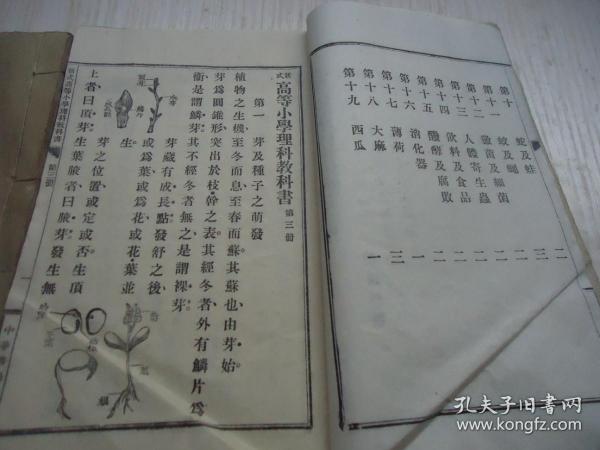 第十 蛇及蛙 二
第十一 蚊及蠅 二
第十二 黴菌及細菌 三
第十三 人體寄生蟲 二
第十四 飲料及食品 二
第十五 釀酵及腐敗 二
第十六 消化器 三
第十七 薄荷 一
第十八 大麻
第十九 西瓜 一
新式高等小學理科教科書 第三册
第一 芽及種子之萌發
植物之生機至冬而息至春而蘇其蘇也由芽始
芽爲圓錐形突出於枝幹之表其經冬者外有鱗片爲
衞是謂鱗芽其不經冬者無之是謂裸芽
芽藏有成長點發舒之後
或爲葉或爲花或花葉並
生
芽之位置或定或否生頂
上者曰頂芽生葉腋者曰腋芽發生無
新式高等小學理科教科書 第三册
中華
孔夫子旧书网
www.kongfz.com